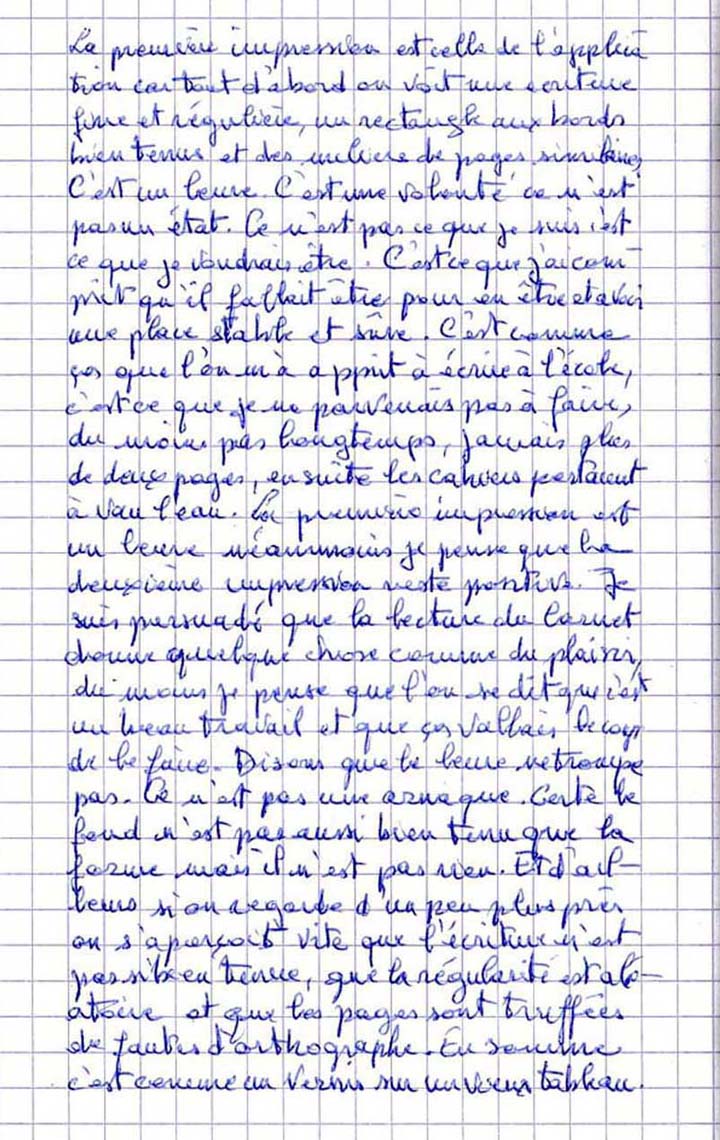 La première impression est celle de l'applica
tion car tout d'abord on voit une écriture
fine et régulière, un rectangle aux bords
bien tenus et des milliers de pages similaires,
C'est un leurre. C'est une volonté ce n'est
pas un état. Ce n'est pas ce que je suis c'est
ce que je voudrais être. C'est ce que j'ai com
prit qu'il fallait être pour en être et avoir
une place stable et sûre. C'est comme
ça que l'on m'à apprit à écrire à l'école,
c'est ce que je ne parvenais pas à faire,
du moins pas longtemps, jamais plus
de deux pages, ensuite les cahiers partaient
à vau l'eau. La première impression est
un leurre néanmoins je pense que la
deuxième impression reste positive. Je
suis persuadé que la lecture du carnet
donne quelque chose comme du plaisir,
du moins je pense que l'on se dit que c'est
un beau travail et que ça vallais le coup
de le faire. Disons que le leurre ne trompe
pas. Ce n'est pas une arnaque. Certe le
fond n'est pas aussi bien tenu que la
forme mais il n'est pas rien. Et d'ail-
leurs si on regarde d'un peu plus près
on s'aperçoit vite que l'écriture n'est
pas si bien tenue, que la régularité est alé-
atoire et que les pages sont truffées
de fautes d'orthographe. En somme
c'est comme un vernis sur un vieux tableau.